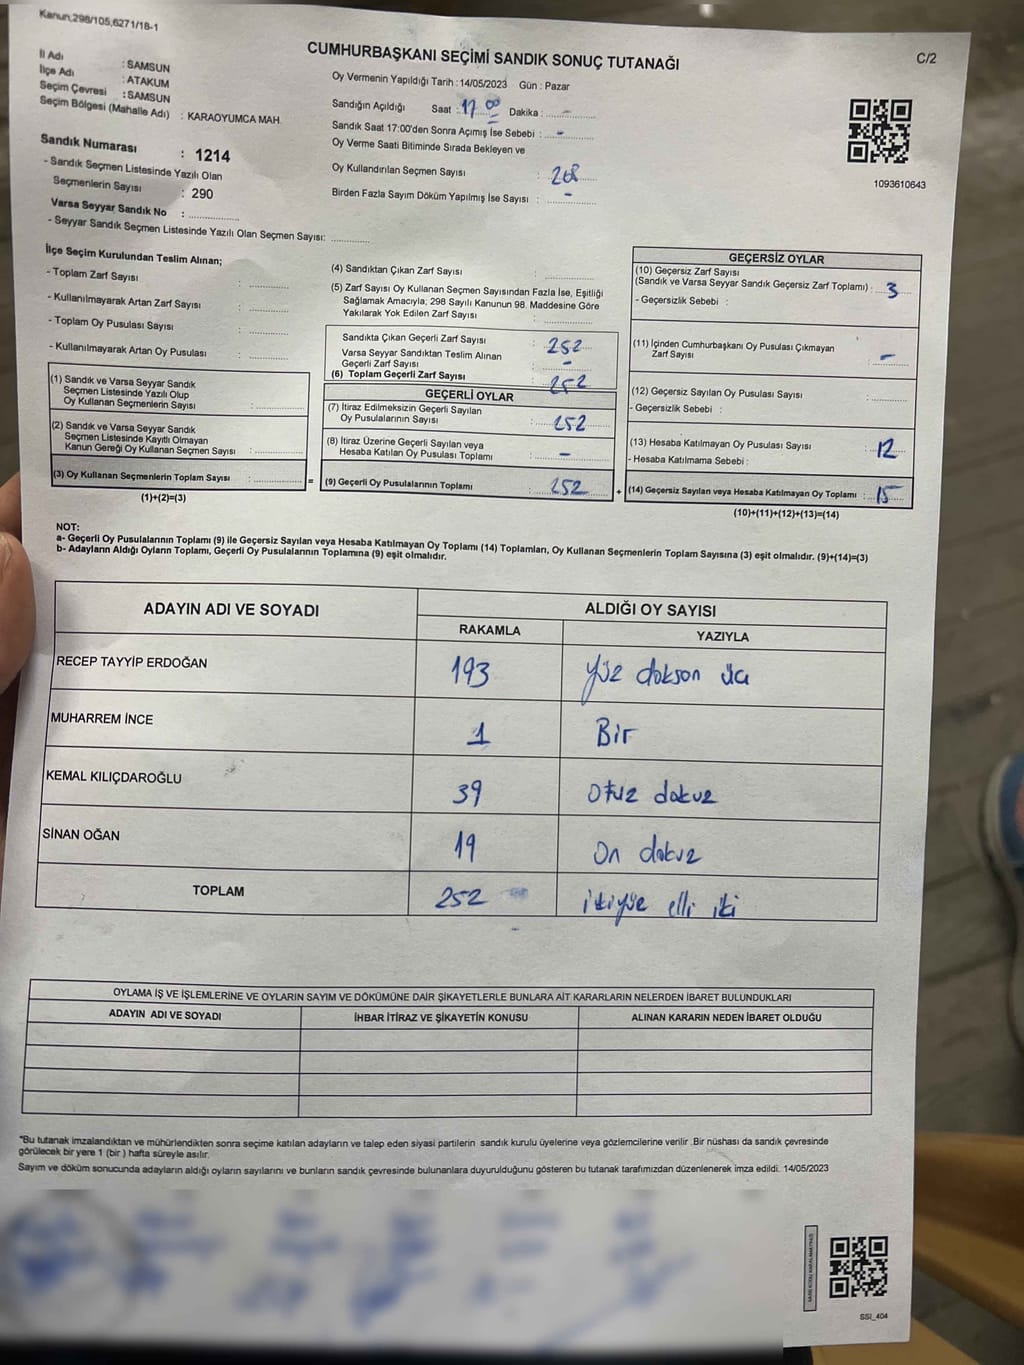 Kanun;298/105,6271/18-1
CUMHURBAŞKANI SEÇİMİ SANDIK SONUÇ TUTANAĞI
C/2
İl Adı : SAMSUN
İlçe Adı : ATAKUM
Seçim Çevresi : SAMSUN
Seçim Bölgesi (Mahalle Adı) : KARAOYUMCA MAH.
Sandık Numarası : 1214
- Sandık Seçmen Listesinde Yazılı Olan
Seçmenlerin Sayısı : 290
Varsa Seyyar Sandık No :
- Seyyar Sandık Seçmen Listesinde Yazılı Olan Seçmen Sayısı:
Oy Vermenin Yapıldığı Tarih : 14/05/2023 Gün : Pazar
Sandığın Açıldığı Saat : 17 00 Dakika : -
Sandık Saat 17:00'den Sonra Açımış İse Sebebi : -
Oy Verme Saati Bitiminde Sırada Bekleyen ve
Oy Kullandırılan Seçmen Sayısı : 268
Birden Fazla Sayım Döküm Yapılmış İse Sayısı : -
1093610643
İlçe Seçim Kurulundan Teslim Alınan;
- Toplam Zarf Sayısı :
- Kullanılmayarak Artan Zarf Sayısı :
- Toplam Oy Pusulası Sayısı :
- Kullanılmayarak Artan Oy Pusulası :
(1) Sandık ve Varsa Seyyar Sandık
Seçmen Listesinde Yazılı Olup
Oy Kullanan Seçmenlerin Sayısı :
(2) Sandık ve Varsa Seyyar Sandık
Seçmen Listesinde Kayıtlı Olmayan
Kanun Gereği Oy Kullanan Seçmen Sayısı :
(3) Oy Kullanan Seçmenlerin Toplam Sayısı : =
(1)+(2)=(3)
(4) Sandıktan Çıkan Zarf Sayısı :
(5) Zarf Sayısı Oy Kullanan Seçmen Sayısından Fazla İse, Eşitliği
Sağlamak Amacıyla, 298 Sayılı Kanunun 98. Maddesine Göre
Yakılarak Yok Edilen Zarf Sayısı :
Sandıkta Çıkan Geçerli Zarf Sayısı : 252
Varsa Seyyar Sandıktan Teslim Alınan
Geçerli Zarf Sayısı : -
(6) Toplam Geçerli Zarf Sayısı : 252
GEÇERLİ OYLAR
(7) İtiraz Edilmeksizin Geçerli Sayılan
Oy Pusulalarının Sayısı : 252
(8) İtiraz Üzerine Geçerli Sayılan veya
Hesaba Katılan Oy Pusulası Toplamı : -
(9) Geçerli Oy Pusulalarının Toplamı : 252 +
GEÇERSİZ OYLAR
(10) Geçersiz Zarf Sayısı
(Sandık ve Varsa Seyyar Sandık Geçersiz Zarf Toplamı) : 3
- Geçersizlik Sebebi :
(11) İçinden Cumhurbaşkanı Oy Pusulası Çıkmayan
Zarf Sayısı : -
(12) Geçersiz Sayılan Oy Pusulası Sayısı :
- Geçersizlik Sebebi :
(13) Hesaba Katılmayan Oy Pusulası Sayısı : 12
- Hesaba Katılmama Sebebi :
(14) Geçersiz Sayılan veya Hesaba Katılmayan Oy Toplamı : 15
(10)+(11)+(12)+(13)=(14)
NOT:
a- Geçerli Oy Pusulalarının Toplamı (9) ile Geçersiz Sayılan veya Hesaba Katılmayan Oy Toplamı (14) Toplamları, Oy Kullanan Seçmenlerin Toplam Sayısına (3) eşit olmalıdır. (9)+(14)=(3)
b- Adayların Aldığı Oyların Toplamı, Geçerli Oy Pusulalarının Toplamına (9) eşit olmalıdır.
ADAYIN ADI VE SOYADI ALDIĞI OY SAYISI
RAKAMLA YAZIYLA
RECEP TAYYİP ERDOĞAN 193 Yüz doksan üç
MUHARREM İNCE 1 Bir
KEMAL KILIÇDAROĞLU 39 Otuz dokuz
SİNAN OĞAN 19 On dokuz
TOPLAM 252 ikiyüz elli iki
OYLAMA İŞ VE İŞLEMLERİNE VE OYLARIN SAYIM VE DÖKÜMÜNE DAİR ŞİKAYETLERLE BUNLARA AİT KARARLARIN NELERDEN İBARET BULUNDUKLARI
ADAYIN ADI VE SOYADI İHBAR İTİRAZ VE ŞİKAYETİN KONUSU ALINAN KARARIN NEDEN İBARET OLDUĞU
"Bu tutanak imzalandıktan ve mühürlendikten sonra seçime katılan adayların ve talep eden siyasi partilerin sandık kurulu üyelerine veya gözlemcilerine verilir .Bir nüshası da sandık çevresinde
görülecek bir yere 1 (bir ) hafta süreyle asılır.
Sayım ve döküm sonucunda adayların aldığı oyların sayılarını ve bunların sandık çevresinde bulunanlara duyurulduğunu gösteren bu tutanak tarafımızdan düzenlenerek imza edildi. 14/05/2023
SSI_404